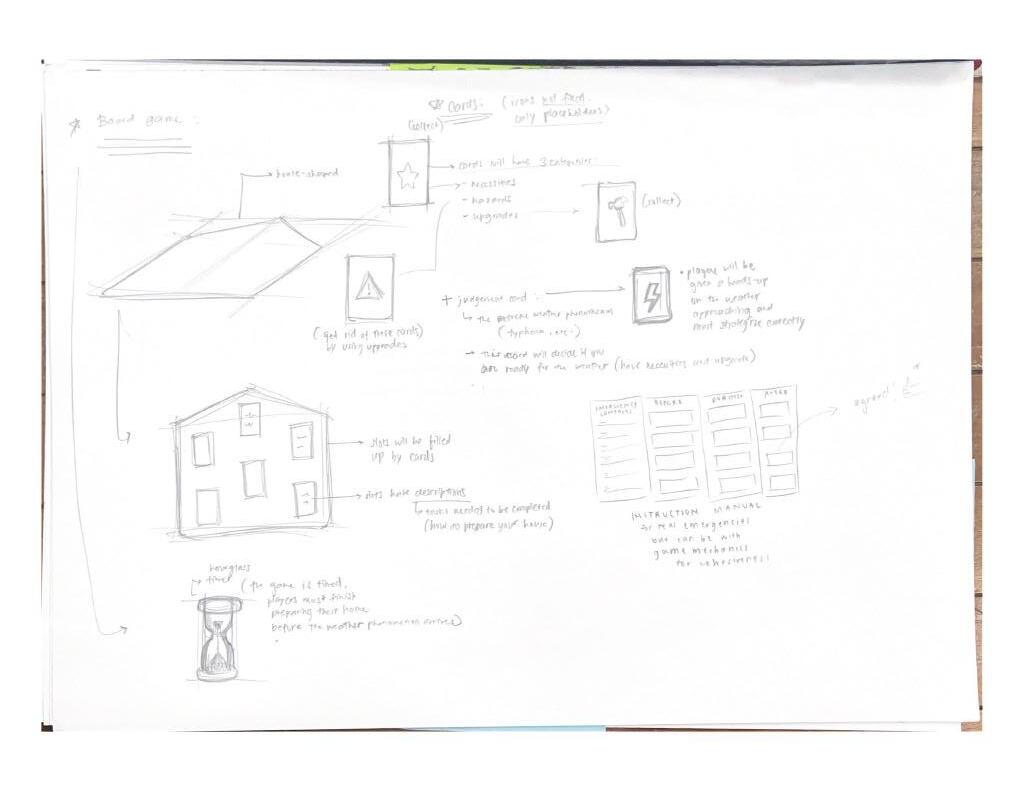 Board game :
Cards: (icons not fixed,
only placeholders)
(collect)
house-shaped
cards will have 3 categories:
- necessities
- hazards
- upgrades
(collect)
(get rid of these cards)
by using upgrades
+ judgement card :
the extreme weather phenomenon
(typhoon, etc.)
• players will be
given a heads-up
on the weather
approaching and
must strategize correctly
This card will decide if you
are ready for the weather (have necessities and upgrade)
slots will be filled
up by cards
slots have descriptions
tasks needed to be completed
(how to prepare your house)
EMERGENCY
CONTACTS
BEFORE
DURING
AFTER
INSTRUCTION MANUAL
for real emergencies
but can be with
game mechanics
for cohesiveness!
hourglass
timer
(the game is timed,
players must finish
preparing their home
before the weather phenomenon arrives)